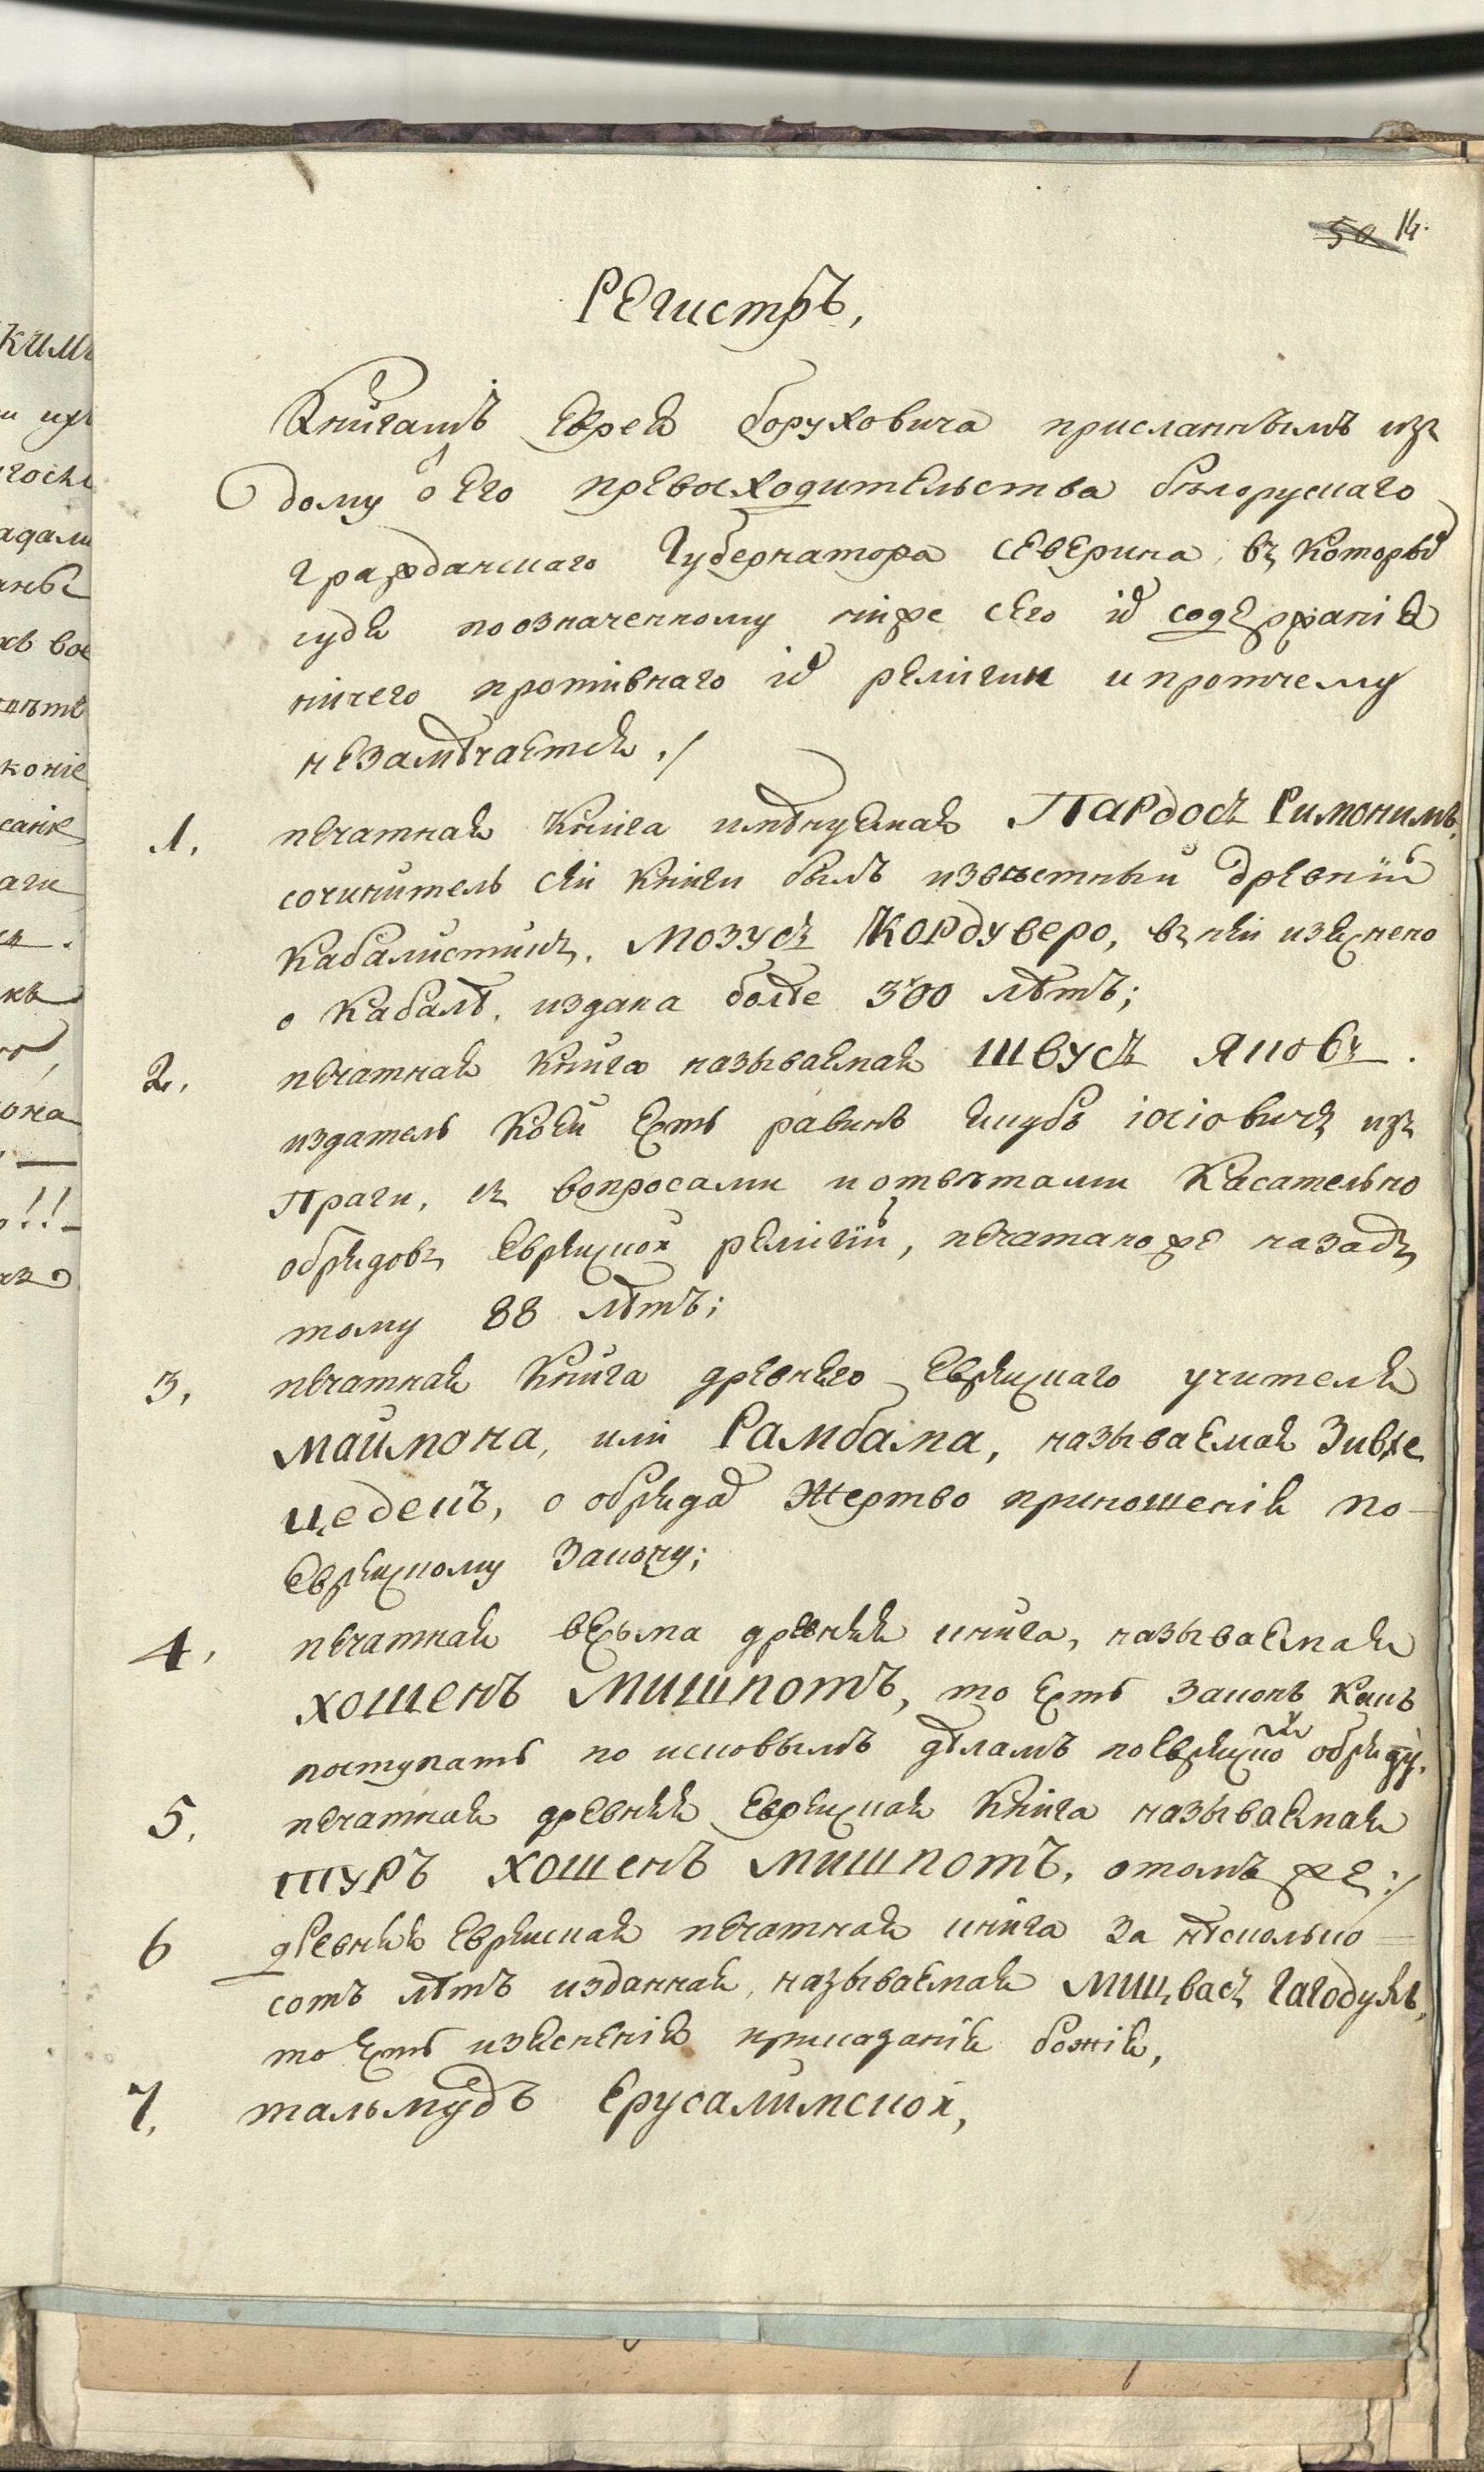 50 14.
Регистръ,
Книгамъ Еврея боруховича присланнымъ изъ
дому о Его превосходительства бѣлорускаго
гражданскаго Губернатора северина, въ которыхъ
судя поозначенному ниже сего ихъ содержанию
ничего противнаго ихъ религии и протчему
незамѣчается ./
1. печатная книга имѣнуемая Пардосъ Римонимъ,
сочинитель сей книги былъ извѣстный древнiй
Кабалистикъ, Мозусъ Кордуверо, въ ней изъяснено
о Кабалѣ, издана болѣе 300 лѣтъ;
2. печатная книга называемая Швусъ Яковъ.
издатель коей есть равинъ Якубъ iосiовичъ изъ
Праги, съ вопросами и отвѣтами Касательно
обрядовъ Еврейской религiи, печатано же назадъ
тому 88 лѣтъ;
3. печатная Книга древняго Еврейскаго учителя
маймона, или Рамбама, называемая Зивхе
цедекъ, о обрядахъ Жертво приношенiя по-
Еврейскому Закону;
4. печатная весьма древняя книга, называемая
хошенъ мишпотъ, то есть законъ какъ
поступать по исковымъ дѣламъ поЕврейско му обряду.
5. печатная древняя Еврейская Книга называемая
туръ хошенъ мишпотъ, отомъ же:/
6 древняя Еврейская печатная книга за нѣсколько
сотъ лѣтъ изданная, называемая мицвасъ гагодулъ,
то есть изъясненiя приказанiя божiя,
7. тальмудъ Ерусалимской,